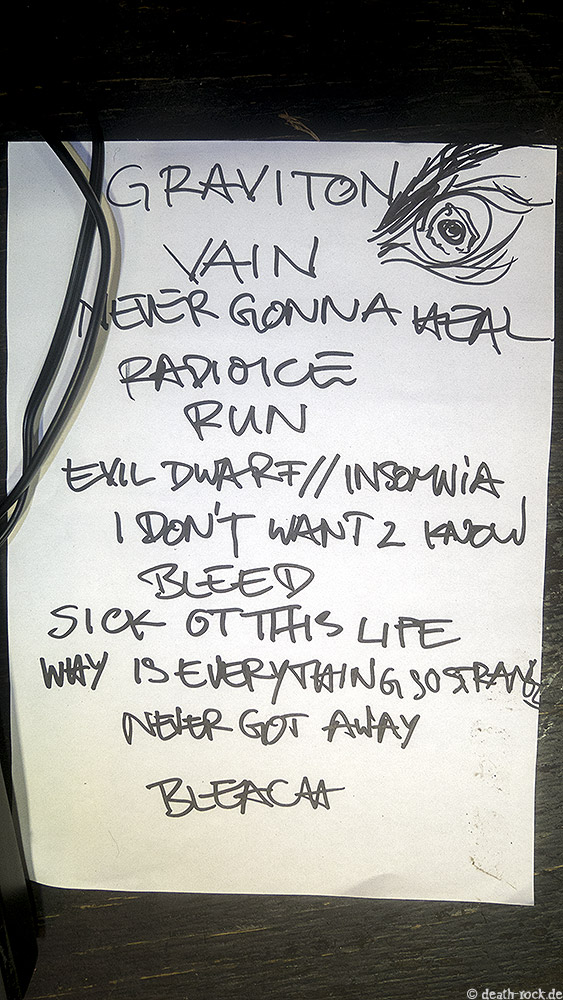 GRAVITON
VAIN
NEVER GONNA HEAL
RADIOICE
RUN
EVIL DWARF // INSOMNiA
I DON'T WANT 2 KNOW
BLEED
SICK OF THIS LIFE
WHY IS EVERYTHING SO STRANGE
NEVER GOT AWAY
BLEACH
© death-rock.de